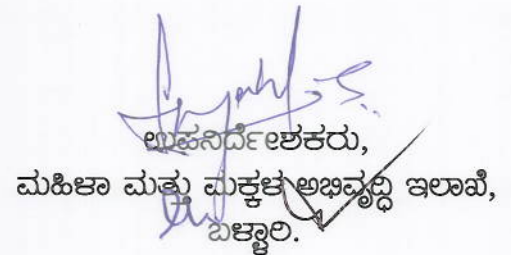 ಉಪನಿರ್ದೇಶಕರು,
ಮಹಿಳಾ ಮತ್ತು ಮಕ್ಕಳ ಅಭಿವೃದ್ಧಿ ಇಲಾಖೆ,
ಬಳ್ಳಾರಿ.